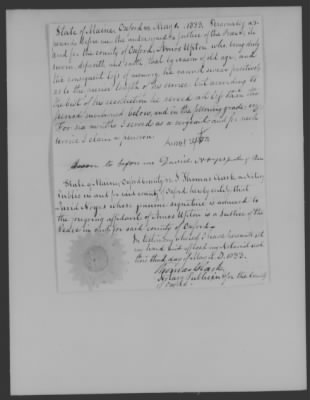 State of Maine, Oxford ss May 1. 1833. Personally ap-
peared before me the undersigned a Justice of the Peace, in
and for the county of Oxford, Amos Upton who being duly
sworn deposeth and saith that by reason of old age, and
the consequent loss of memory, he cannot swear positively
as to the precise length of his service, but according to
the best of his recollection he served not less than the
period mentioned below, and in the following grade: viz
For six months I served as a sergeant and for such
service I claim a pension.
Amos Upton
Sworn to before me David Noyes Justice of Peace
State of Maine, Oxford county ss. I Thomas Clark a Notary
Public in and for said county of Oxford, hereby certify that
David Noyes whose genuine signature is annexed to
the foregoing affidavit of Amos Upton is a Justice of the
Peace in and for said county of Oxford.
In testimony whereof I have hereunto set
my hand and affixed my Notarial seal
this third day of May A.D. 1833.
Thomas Clark
Notary Public for the County
Oxford